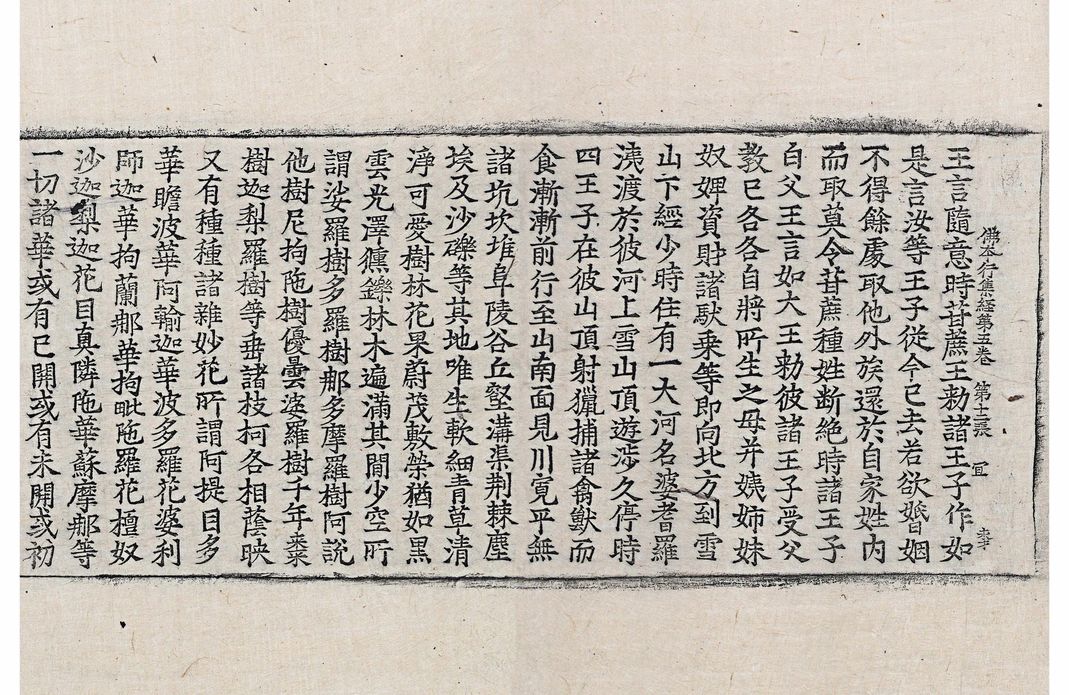 佛本行集経第五卷 第十三張 冝
王言隨意時甘蔗王勑諸王子作如
是言汝等王子從今已去若欲婚姻
不得餘處取他外族還於自家姓内
而取莫令甘蔗種姓断絶時諸王子
白父王言如大王勑彼諸王子受父
教已各各自將所生之母并姨姉妹
奴婢資財諸馱乗等即向北方到雪
山下經少時住有一大河名婆耆羅
洟渡於彼河上雪山頂遊涉久停時
四王子在彼山頂射獵捕諸禽獸而
食漸漸前行至山南面見川寛平無
諸坑坎堆阜陵谷丘壑溝渠荆棘塵
埃及沙礫等其地唯生軟細青草清
淨可愛樹林花果蔚茂敷榮猶如黒
雲光澤㷱鑠林木遍滿其閒少空所
謂娑羅樹多羅樹那多摩羅樹阿説
他樹尼拘陁樹優曇婆羅樹千年棗
樹迦梨羅樹等垂諸枝柯各相蔭映
又有種種諸雜妙花所謂阿提目多
華瞻波華阿輸迦華波多羅花婆利
師迦華拘蘭那華拘毗陁羅花檀奴
沙迦梨迦花目真隣陁華蘇摩那等
一切諸華或有已開或有未開或初